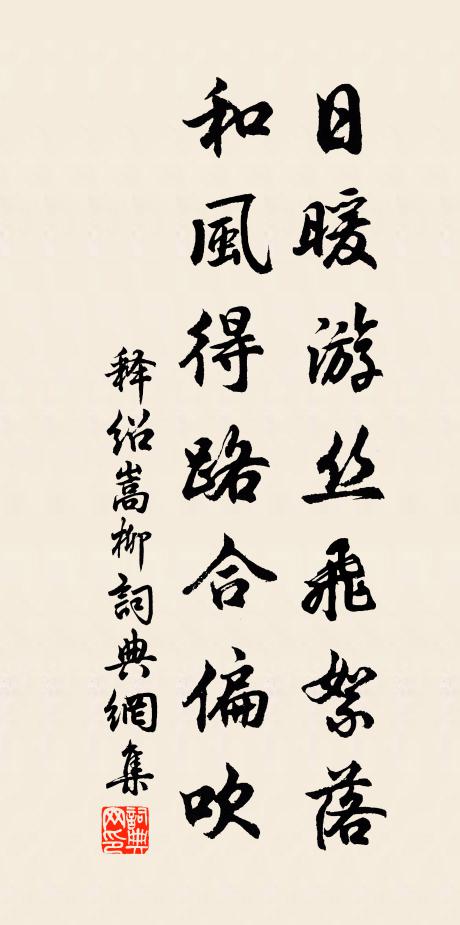 日暖游丝飛絮落
和風得路合偏吹
释绍嵩柳詞典網集
詞典网印